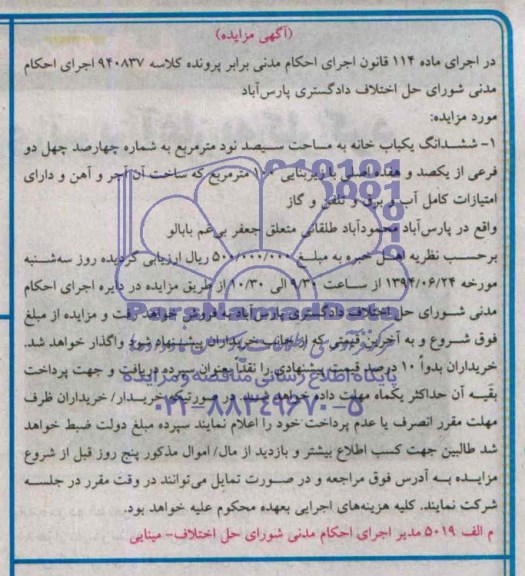 (آگهی مزایده)
در اجرای ماده ۱۱۴ قانون اجرای احکام مدنی برابر پرونده کلاسه ۹۴۰۸۳۷ اجرای احکام
مدنی شورای حل اختلاف دادگستری پارس‌آباد
مورد مزایده:
۱- ششدانگ یکباب خانه به مساحت سیصد نود مترمربع به شماره چهارصد چهل دو
فرعی از یکصد و هفده اصلی با زیربنایی ۱۰۰ مترمربع که ساخت آن آجر و آهن و دارای
امتیازات کامل آب و برق و تلفن و گاز
واقع در پارس‌آباد محمودآباد طلقانی متعلق جعفر بی‌غم بابالو
برحسب نظریه اهل خبره به مبلغ ۵۰۰/۰۰۰/۰۰۰ ریال ارزیابی گردیده روز سه‌شنبه
مورخه ۱۳۹۴/۰۶/۲۴ از ساعت ۹/۳۰ الی ۱۰/۳۰ از طریق مزایده در دایره اجرای احکام
مدنی شورای حل اختلاف دادگستری پارس‌آباد به فروش خواهد رفت و مزایده از مبلغ
فوق شروع و به آخرین قیمتی که از جانب خریداران پیشنهاد شود واگذار خواهد شد.
خریداران بدواً ۱۰ درصد قیمت پیشنهادی را نقداً بعنوان سپرده دریافت و جهت پرداخت
بقیه آن حداکثر یکماه مهلت داده خواهد شد. در صورتیکه خریدار/ خریداران ظرف
مهلت مقرر انصرف یا عدم پرداخت خود را اعلام نمایند سپرده مبلغ دولت ضبط خواهد
شد طالبین جهت کسب اطلاع بیشتر و بازدید از مال/ اموال مذکور پنج روز قبل از شروع
مزایده به آدرس فوق مراجعه و در صورت تمایل می‌توانند در وقت مقرر در جلسه
شرکت نمایند. کلیه هزینه‌های اجرایی بعهده محکوم علیه خواهد بود.
م الف ۵۰۱۹ مدیر اجرای احکام مدنی شورای حل اختلاف- مینایی
Pars Namad Data
پایگاه اطلاع رسانی مناقصه و مزایده
۰۲۱-۸۸۳۴۹۶۷۰-۵